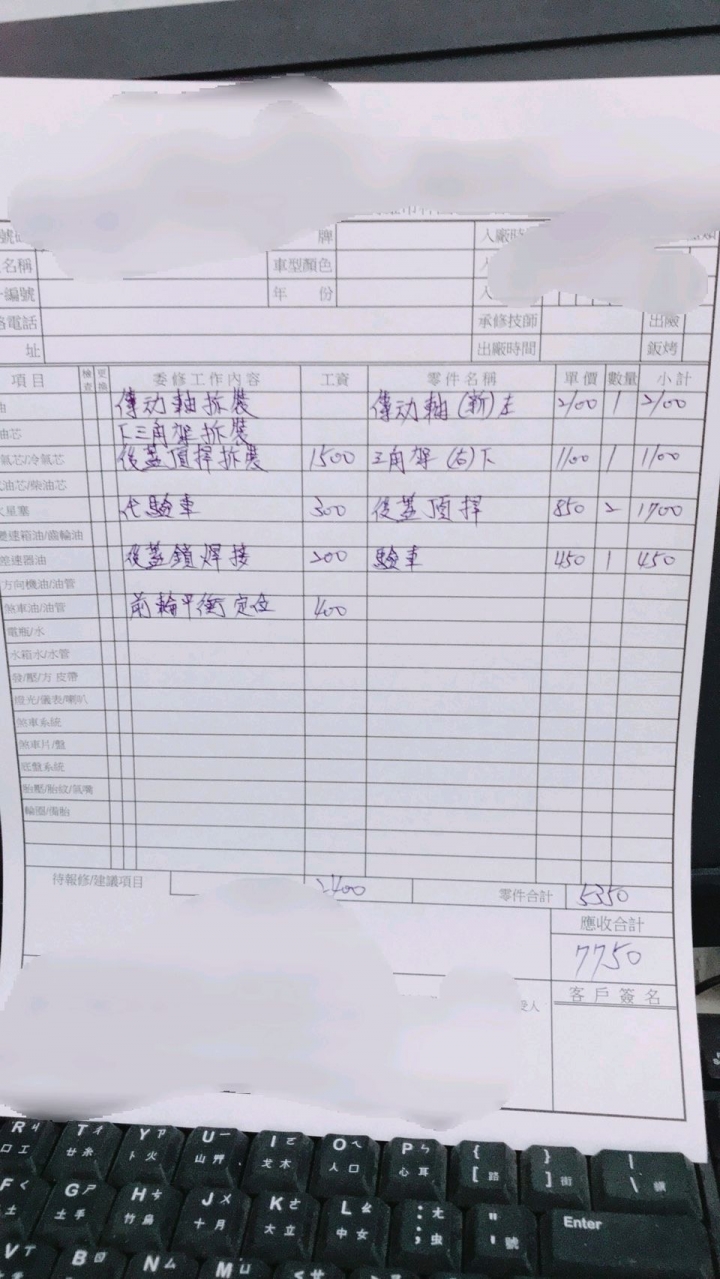 牌 入廠時
名稱 車型顏色
編號 年 份
電話 承修技師 出險
址 出廠時間 鈑烤
項目 檢查 更換 委修工作內容 工資 零件名稱 單價 數量 小計
油 傳动軸拆裝 傳动軸(新)左 2100 1 2100
油芯 下三角架拆裝
氣芯/冷氣芯 後蓋頂桿拆裝 1500 三角架(右)下 1100 1 1100
油芯/柴油芯
火星塞 代驗車 300 後蓋頂桿 850 2 1700
變速箱油/齒輪油
差速器油 後蓋鎖焊接 200 驗車 450 1 450
方向機油/油管
煞車油/油管 前輪平衡定位 400
電瓶/水
水箱水/水管
發/壓/方 皮帶
燈光/儀表/喇叭
煞車系統
煞車片/盤
底盤系統
胎壓/胎紋/氣嘴
輪圈/備胎
待報修/建議項目 2400 零件合計 5350
應收合計
7750
客戶簽名
人
R ㄐ 口 T ㄔ 廿 Y ㄗ 卜 火 U ㄧ 山 I ㄛ 戈 木 O ㄟ 人 口 P ㄣ 心 耳 { [ } ] | \
F ㄑ 土 G ㄕ 土 手 H ㄘ 竹 J ㄨ 十 月 K ㄜ 大 立 L ㄠ 中 女 : ; ㄤ 虫 " ' 號 Enter
V ㄒ B ㄖ N ㄙ M ㄩ